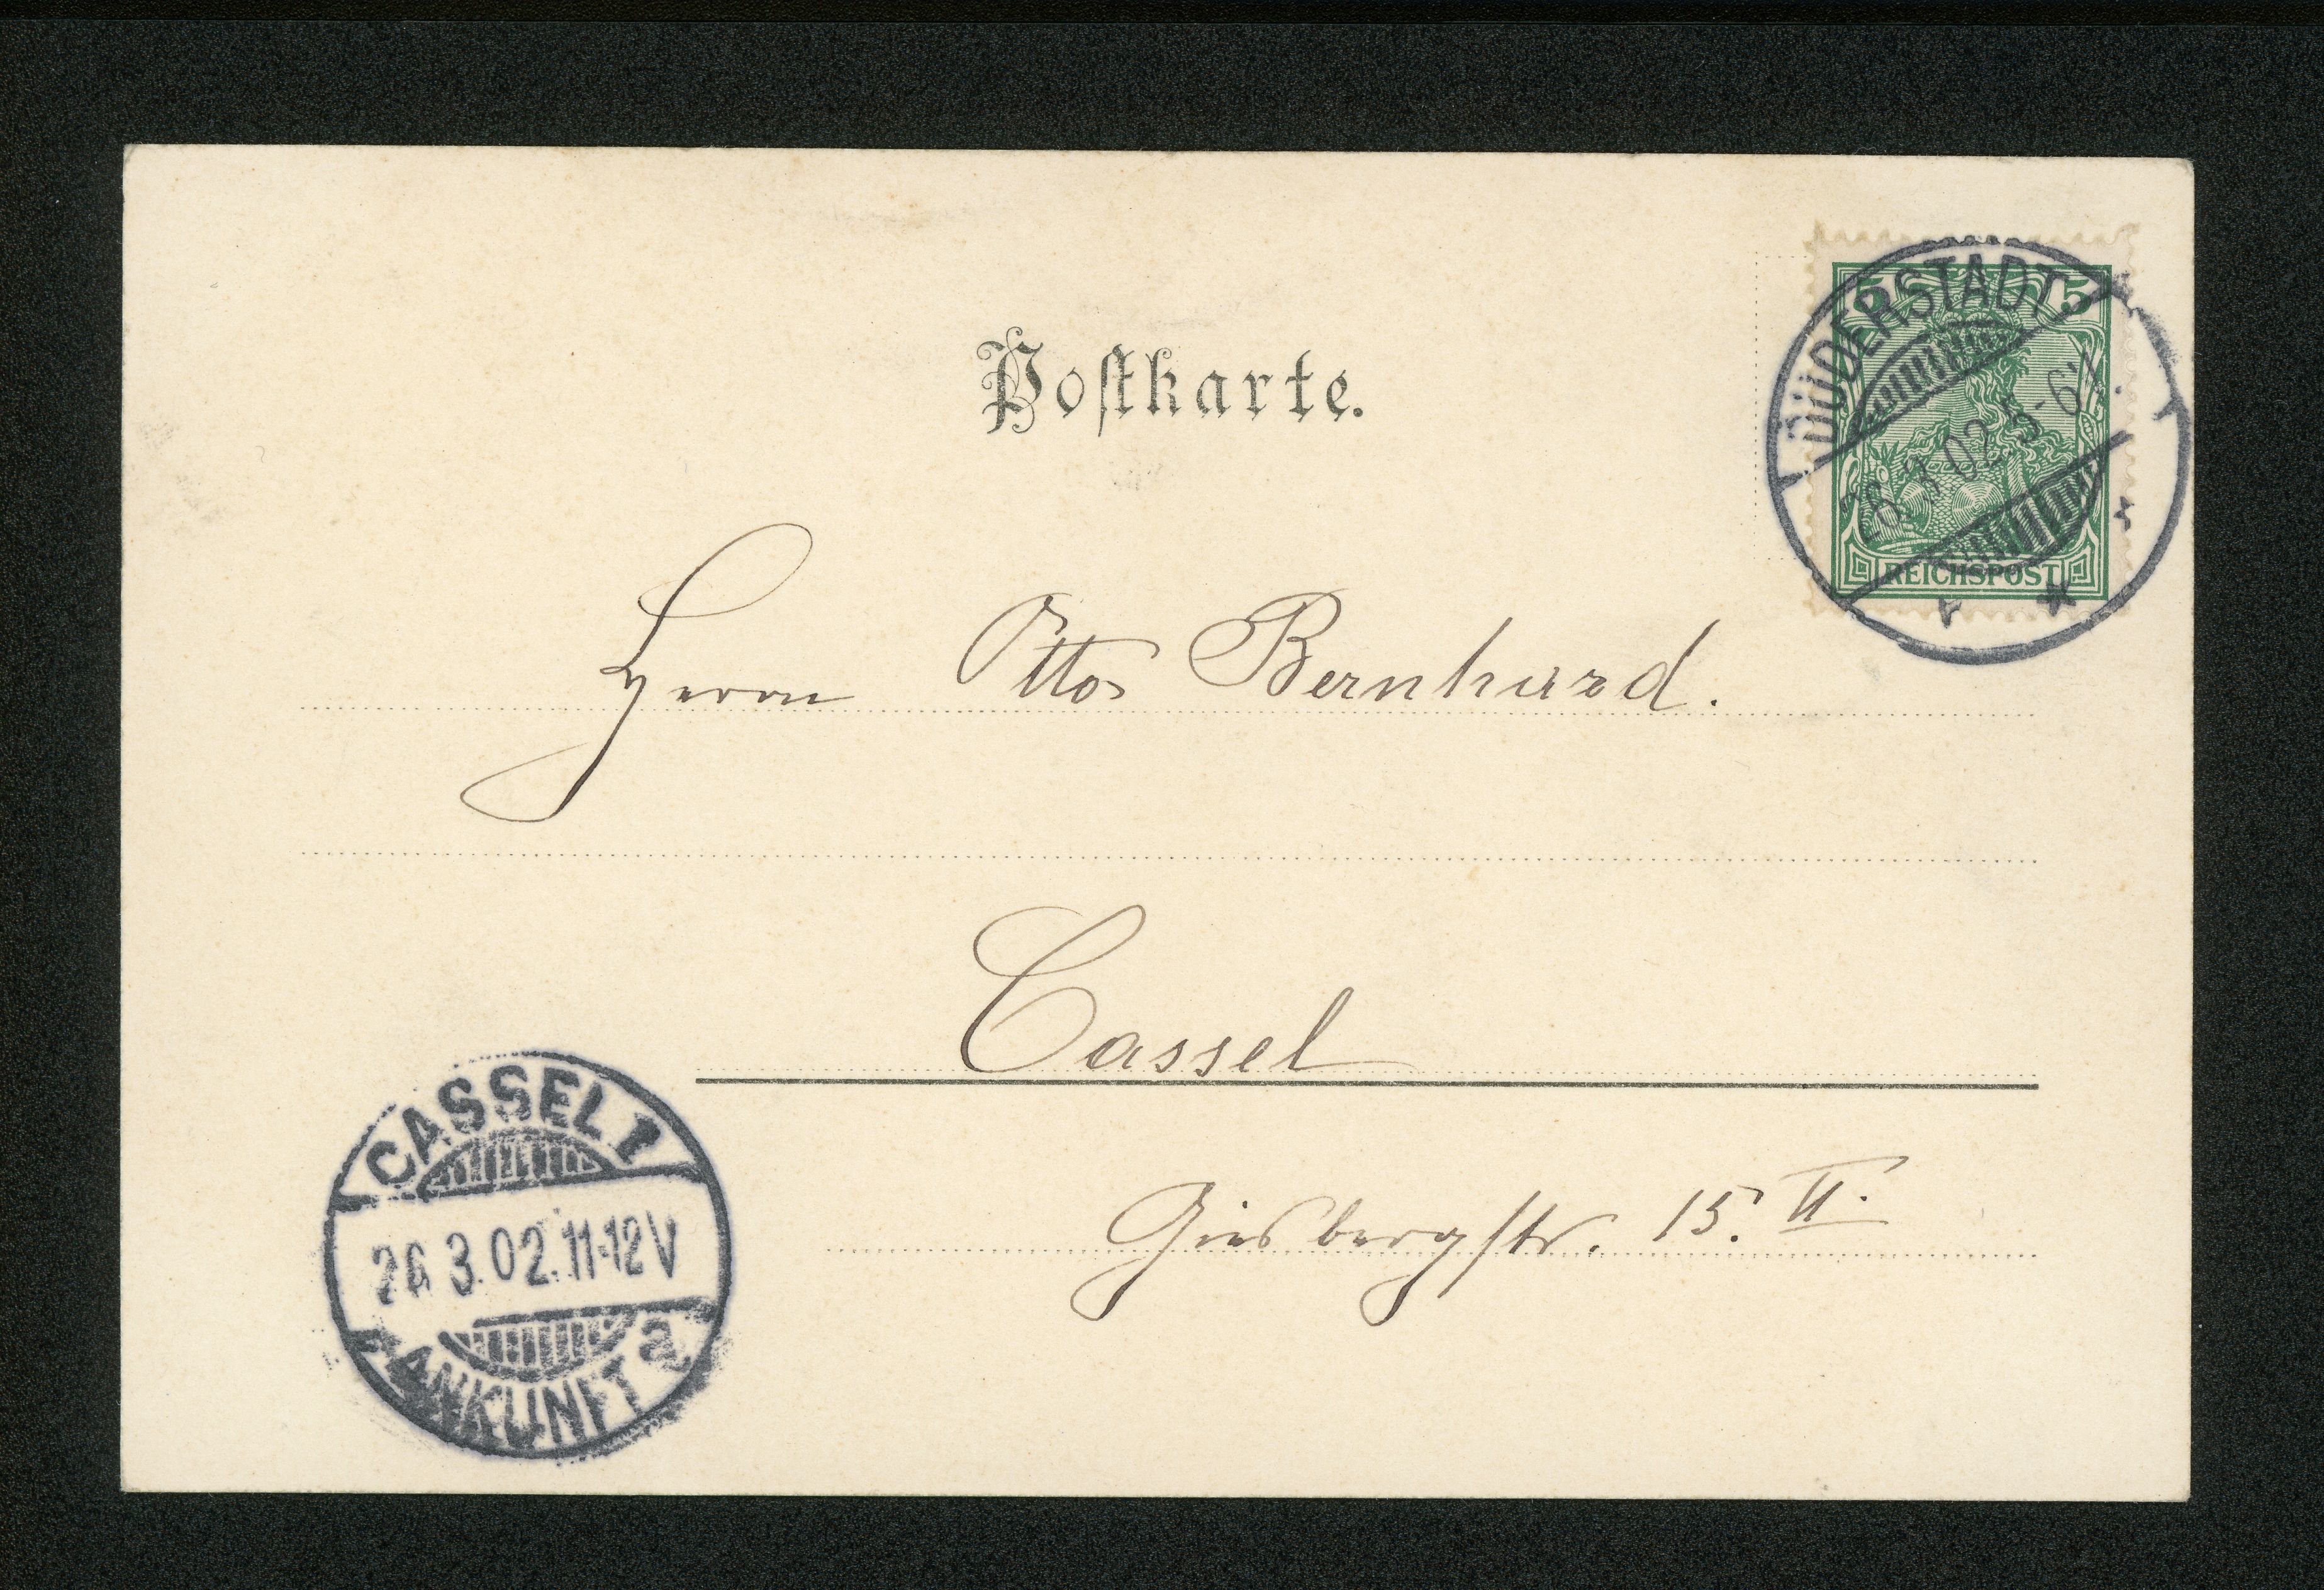 Postkarte.
5 5
REICHSPOST
DUDERSTADT
02. 5-6 N.
Herrn Otto Bernhard.
Cassel
Giesbergstr. 15. II.
CASSEL 1
26 3. 02. 11-12 V
ANKUNFT a